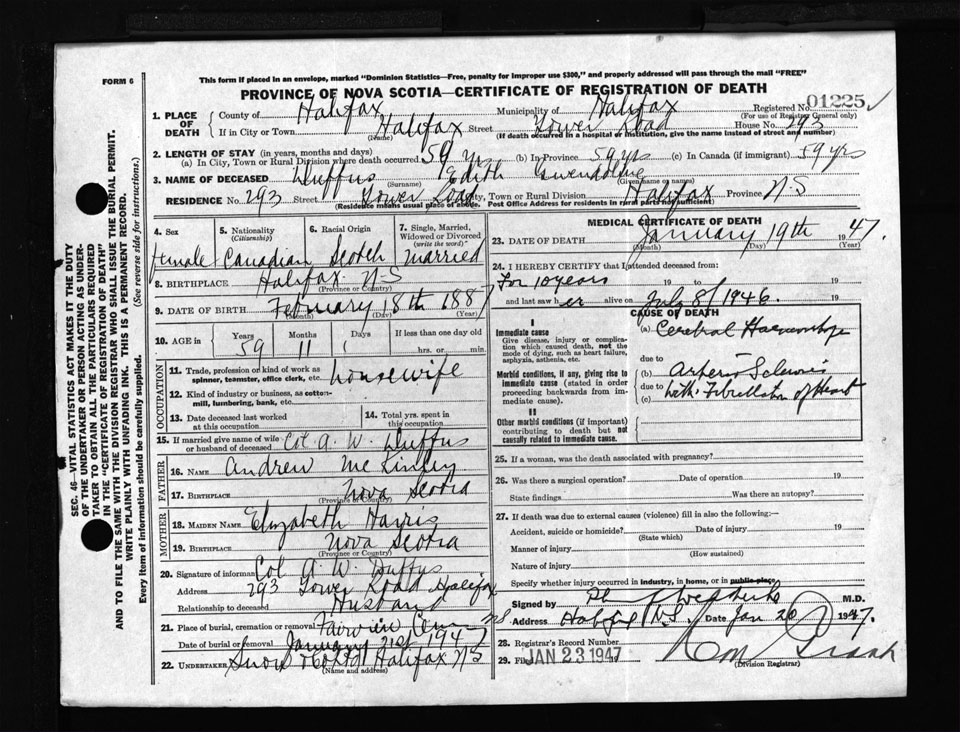 FORM 6
This form if placed in an envelope, marked "Dominion Statistics—Free, penalty for improper use $300," and properly addressed will pass through the mail "FREE"
PROVINCE OF NOVA SCOTIA—CERTIFICATE OF REGISTRATION OF DEATH
1. PLACE OF DEATH County of Halifax Municipality of Halifax Registered No. 01225
(For use of Registrar General only)
If in City or Town Halifax Street Tower Road House No. 293
(Name) (If death occurred in a hospital or institution, give the name instead of street and number)
2. LENGTH OF STAY (in years, months and days)
(a) In City, Town or Rural Division where death occurred 59 yrs (b) In Province 59 yrs (c) In Canada (if immigrant) 59 yrs
3. NAME OF DECEASED Duffus Edith Gwendoline
(Surname) (Given name or names)
RESIDENCE No. 293 Street Tower Road City, Town or Rural Division Halifax Province N.S
(Residence means usual place of abode. Post Office Address for residents in rural parts not sufficient)
4. Sex
female
5. Nationality
(Citizenship)
Canadian
6. Racial Origin
Scotch
7. Single, Married, Widowed or Divorced
(write the word)
married
8. BIRTHPLACE Halifax N-S
(Province or Country)
9. DATE OF BIRTH February 18th 1887
(Month) (Day) (Year)
10. AGE in Years Months Days If less than one day old
59 11 1 hrs. or min.
OCCUPATION
11. Trade, profession or kind of work as spinner, teamster, office clerk, etc. housewife
12. Kind of industry or business, as cotton-mill, lumbering, bank, etc.
13. Date deceased last worked at this occupation
14. Total yrs. spent in this occupation
15. If married give name of wife or husband of deceased Col. G. W. Duffus
FATHER
16. NAME Andrew
17. BIRTHPLACE Nova Scotia
(Province or Country)
MOTHER
18. MAIDEN NAME Elizabeth Harris
19. BIRTHPLACE Nova Scotia
(Province or Country)
20. Signature of informant Col G. W. Duffus
Address 293 Tower Road Halifax
Relationship to deceased Husband
21. Place of burial, cremation or removal Fairview Cem NS
Date of burial or removal January 21st 1947
22. UNDERTAKER Snow & Co Ltd Halifax NS
(Name and address)
MEDICAL CERTIFICATE OF DEATH
23. DATE OF DEATH January 19th 1947.
(Month) (Day) (Year)
24. I HEREBY CERTIFY that I attended deceased from:
For 10 years 19 to 19
and last saw her alive on July 8/1946.
CAUSE OF DEATH
I
Immediate cause
Give disease, injury or complication which caused death, not the mode of dying, such as heart failure, asphyxia, asthenia, etc.
(a) Cerebral Haemorrhage
due to
Morbid conditions, if any, giving rise to immediate cause (stated in order proceeding backwards from immediate cause).
(b) Arterio Sclerosis
due to
(c) with Fibrillation of Heart
II
Other morbid conditions (if important) contributing to death but not causally related to immediate cause.
25. If a woman, was the death associated with pregnancy?
26. Was there a surgical operation? Date of operation 19
State findings Was there an autopsy?
27. If death was due to external causes (violence) fill in also the following:—
Accident, suicide or homicide? Date of injury 19
(State which)
Manner of injury
(How sustained)
Nature of injury
Specify whether injury occurred in industry, in home, or in public place
Signed by M.D.
Address Halifax N.S. Date Jan 20 1947.
28. Registrar's Record Number
29. Filed JAN 23 1947
(Division Registrar)
SEC. 46—VITAL STATISTICS ACT MAKES IT THE DUTY
OF THE UNDERTAKER OR PERSON ACTING AS UNDER-
TAKER TO OBTAIN ALL THE PARTICULARS REQUIRED
IN THE "CERTIFICATE OF REGISTRATION OF DEATH"
AND TO FILE THE SAME WITH THE DIVISION REGISTRAR WHO SHALL ISSUE THE BURIAL PERMIT.
WRITE PLAINLY WITH UNFADING INK. THIS IS A PERMANENT RECORD.
Every item of information should be carefully supplied. (See reverse side for instructions.)